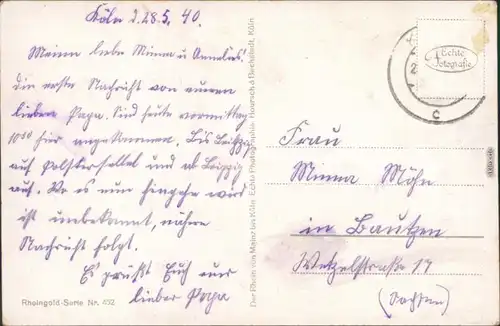 Köln d. 28.5. 40.
Meine liebe Minna u. Annelies!
Die erste Nachricht von eurem
lieben Papa. Sind heute vormittag
10⁵⁰ hier angekommen. Bis Leipzig
auf und ab Leipzig
auf. Wo es nun hingehn wird
ist unbekannt, nähere
Nachricht folgt.
Es grüßt Euch euer
lieber Papa
Rheingold-Serie Nr. 452
Der Rhein von Mainz bis Köln. Echte Photographie Hoursch & Bechstedt, Köln
Echte
Fotografie
C
Frau
Minna Mühn
in Bautzen
Wetzelstraße 17
(Sachsen)